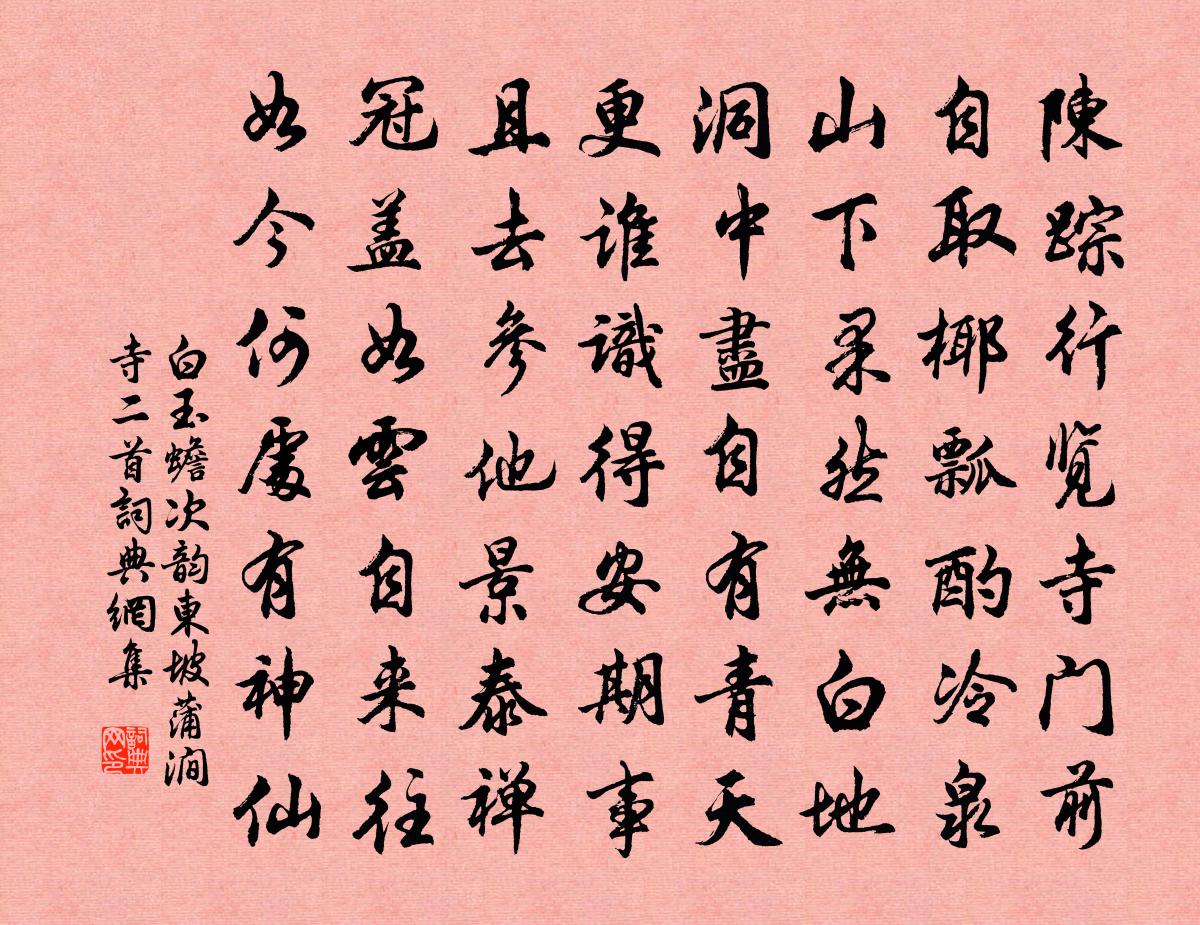 陳踪行览寺门前
自取椰瓢酌冷泉
山下果然無白地
洞中盡自有青天
更誰識得安期事
且去參他景泰禅
冠盖如雲自来往
如今何處有神仙
白玉蟾次韵東坡蒲澗
寺二首詞典網集
詞典网印